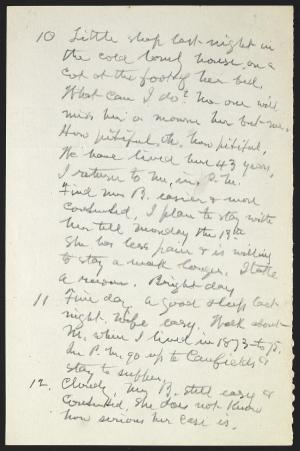 10 Little sleep last night in
the cold lonely house, on a
cot at the foot of her bed.
What can I do? No one will
miss her or mourn her but me.
How pitiful, oh, how pitiful.
We have lived here 43 years.
I return to M. in P.M.
Find Mrs B. easier & more
comforted. I plan to stay with
her till Monday the 13th
She has less pain & is willing
to stay a week longer. I take
a room. Bright day
11 Fine day, a good sleep last
night. Wife easy. Walk about
M. where I lived in 1873 to 75.
In P.M. go up to Caufields &
stay to supper.
12. Cloudy, Mrs B. still easy &
comforted. She does not know
how serious her case is.